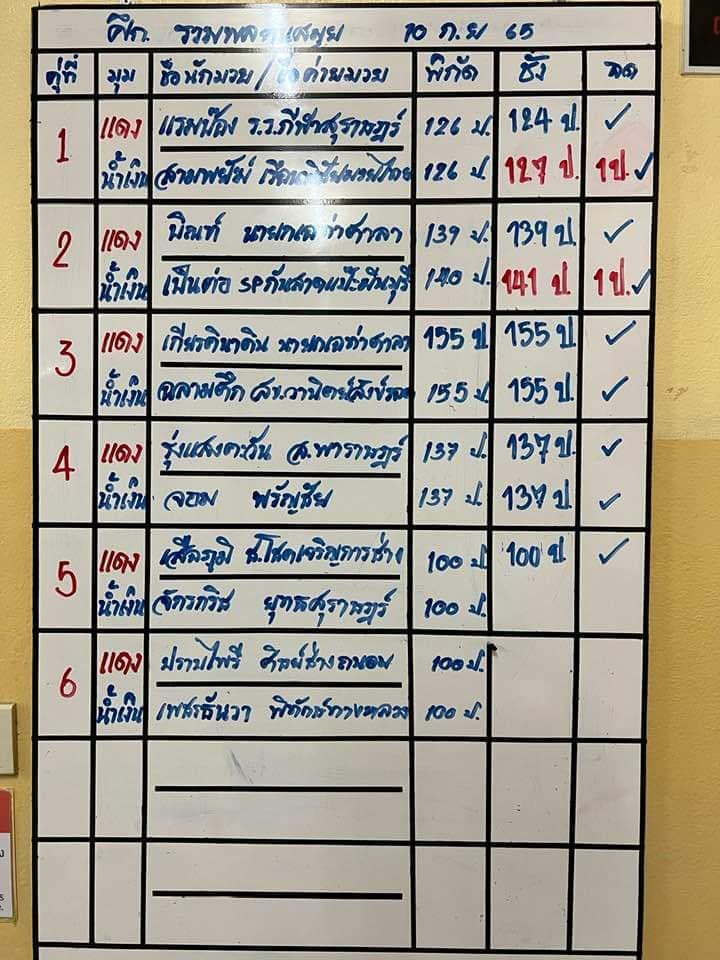 ศึก รวมพลคนสมุย 10 ก.ย 65
คู่ที่ มุม ชื่อนักมวย / ชื่อค่ายมวย พิกัด ชั่ง ลด
1 แดง แรมป๋อง ร.ร.กีฬาสุราษฎร์ 126 ป. 124 ป. ✓
น้ำเงิน สามพยัฆ 126 ป 127 ป. 1ป. ✓
2 แดง พิณฑ์ นายกเลท่าศาลา 139 ป. 139 ป ✓
น้ำเงิน เป็นต่อ SPกันสาดแป๊ะมีนบุรี 140 ป. 141 ป 1ป. ✓
3 แดง เกียรตินาดิน นายกเลท่าศาลา 155 ป 155 ป ✓
น้ำเงิน ฉลามศึก 155 ป 155 ป. ✓
4 แดง รุ่งแสงตะวัน ส.พาราษฎร์ 137 ป. 137 ป. ✓
น้ำเงิน จอม พรัญชัย 137 ป. 137 ป. ✓
5 แดง เสือภูมิ ช.โชคเจริญการช่าง 100 ป. 100 ป ✓
น้ำเงิน จักรกริช ยุทธสุราษฎร์ 100 ป.
6 แดง ปราบไพรี ศิษย์ช่างถนอม 100 ป.
น้ำเงิน เพชรธันวา พิทักษ์ทางหลวง 100 ป.